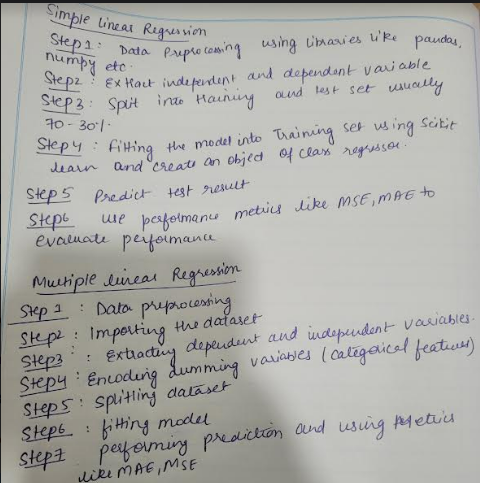 Simple linear Regression
Step 1 : Data Preprocessing using libraries like pandas,
numpy etc.
Step2 : Extract independent and dependent variable
Step 3 : Split into training and test set usually
70-30%.
Step 4 : fitting the model into Training set using Scikit
learn and create an object of class regressor.
Step 5 Predict test result
Step6 use performance metrics like MSE, MAE to
evaluate performance
Multiple linear Regression
Step 1 : Data preprocessing
Step2 : Importing the dataset
Step3 : Extracting dependent and independent variables.
Step4 : Encoding dumming variables (categorical features)
Step 5 : splitling dataset
Step6 : fitting model
Step7 performing prediction and using Metrics
like MAE, MSE